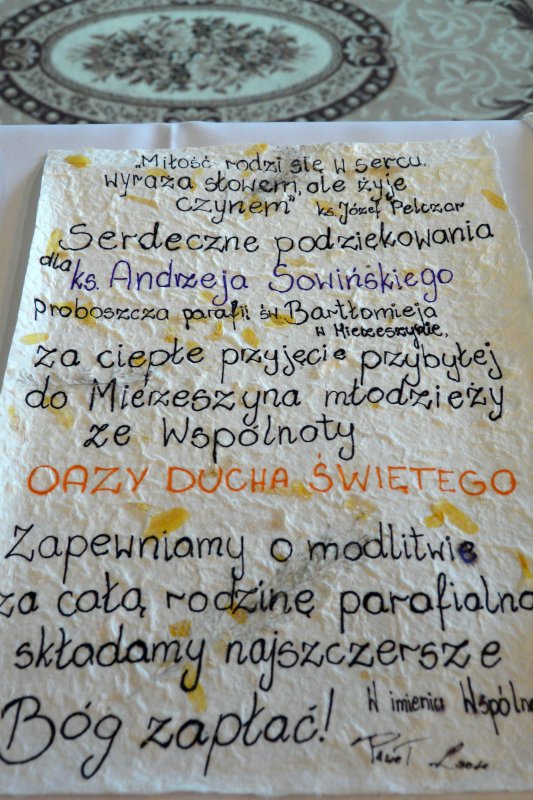 „Miłość rodzi się w sercu,
wyraża słowem, ale żyje
czynem" ks. Józef Pelczar
Serdeczne podziękowania
dla
ks. Andrzeja Sowińskiego
Proboszcza parafii św. Bartłomieja
w Mierzeszynie,
za ciepłe przyjęcie przybyłej
do Mierzeszyna młodzieży
ze Wspólnoty
OAZY DUCHA ŚWIĘTEGO
Zapewniamy o modlitwie
za całą rodzinę parafialną
składamy najszczersze
Bóg zapłać!
W imieniu Wspólno
Paweł